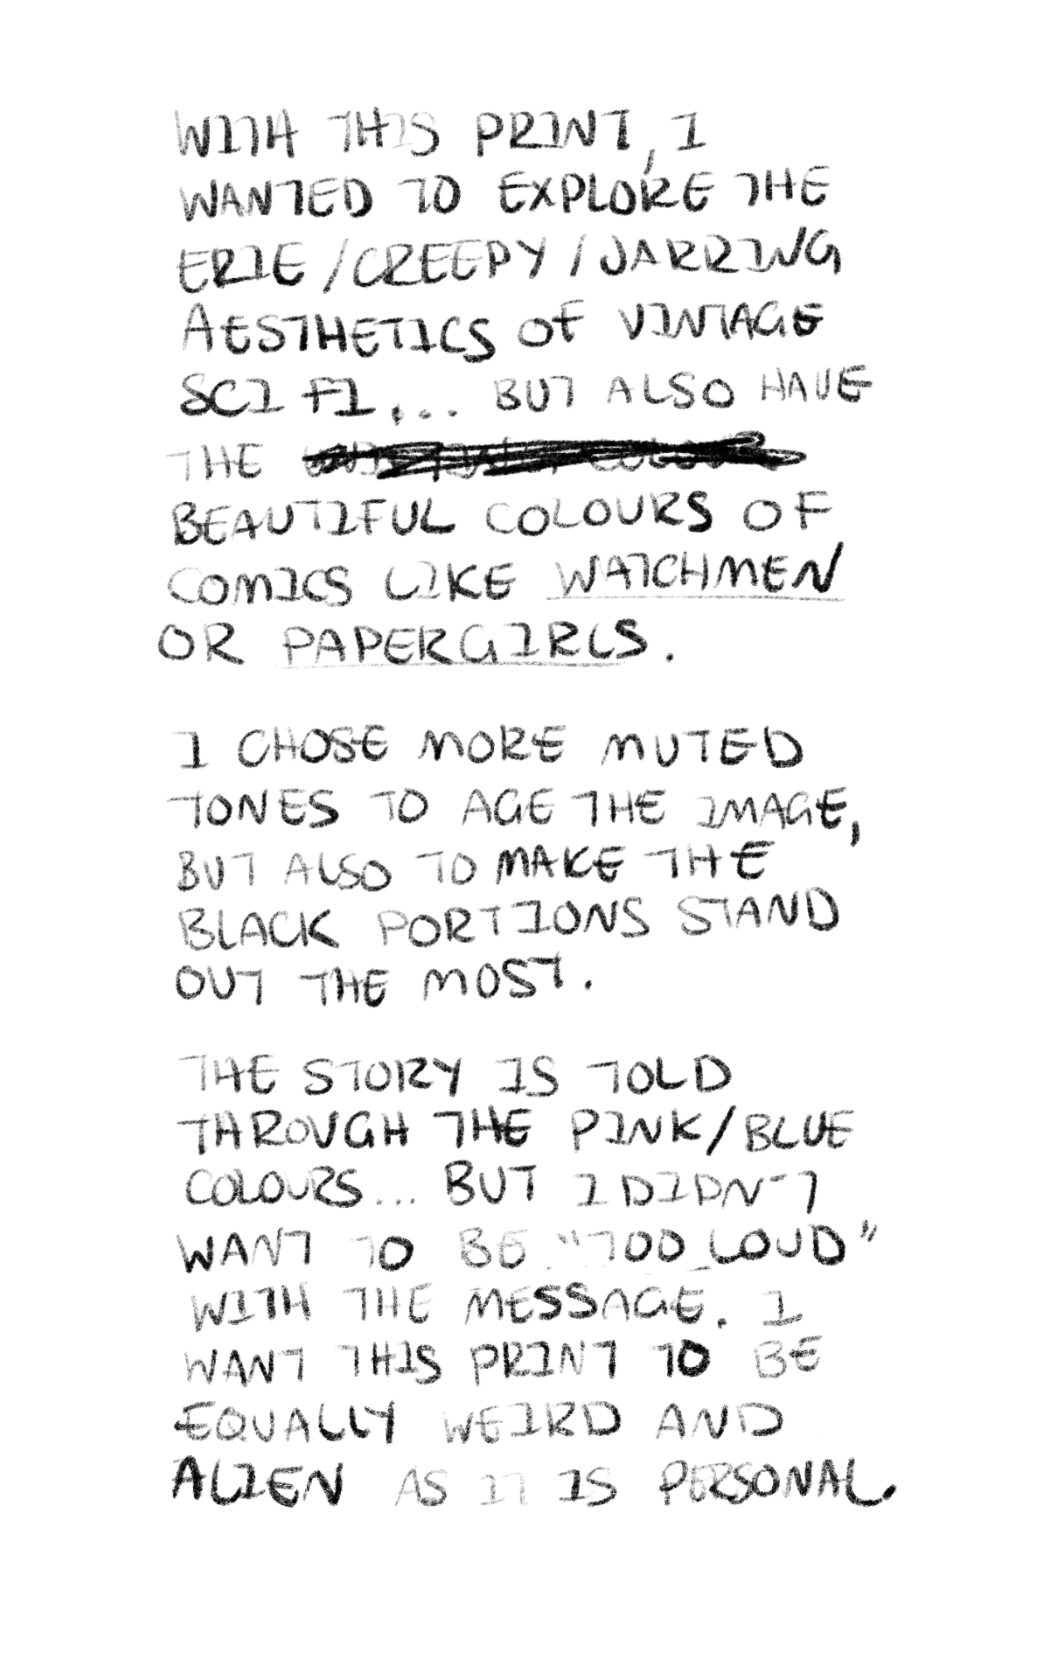 WITH THIS PRINT, I
WANTED TO EXPLORE THE
ERIE/CREEPY/JARRING
AESTHETICS OF VINTAGE
SCI FI... BUT ALSO HAVE
THE
BEAUTIFUL COLOURS OF
COMICS LIKE WATCHMEN
OR PAPERGIRLS.
I CHOSE MORE MUTED
TONES TO AGE THE IMAGE,
BUT ALSO TO MAKE THE
BLACK PORTIONS STAND
OUT THE MOST.
THE STORY IS TOLD
THROUGH THE PINK/BLUE
COLOURS... BUT I DIDN'T
WANT TO BE "TOO LOUD"
WITH THE MESSAGE. I
WANT THIS PRINT TO BE
EQUALLY WEIRD AND
ALIEN AS IT IS PERSONAL.